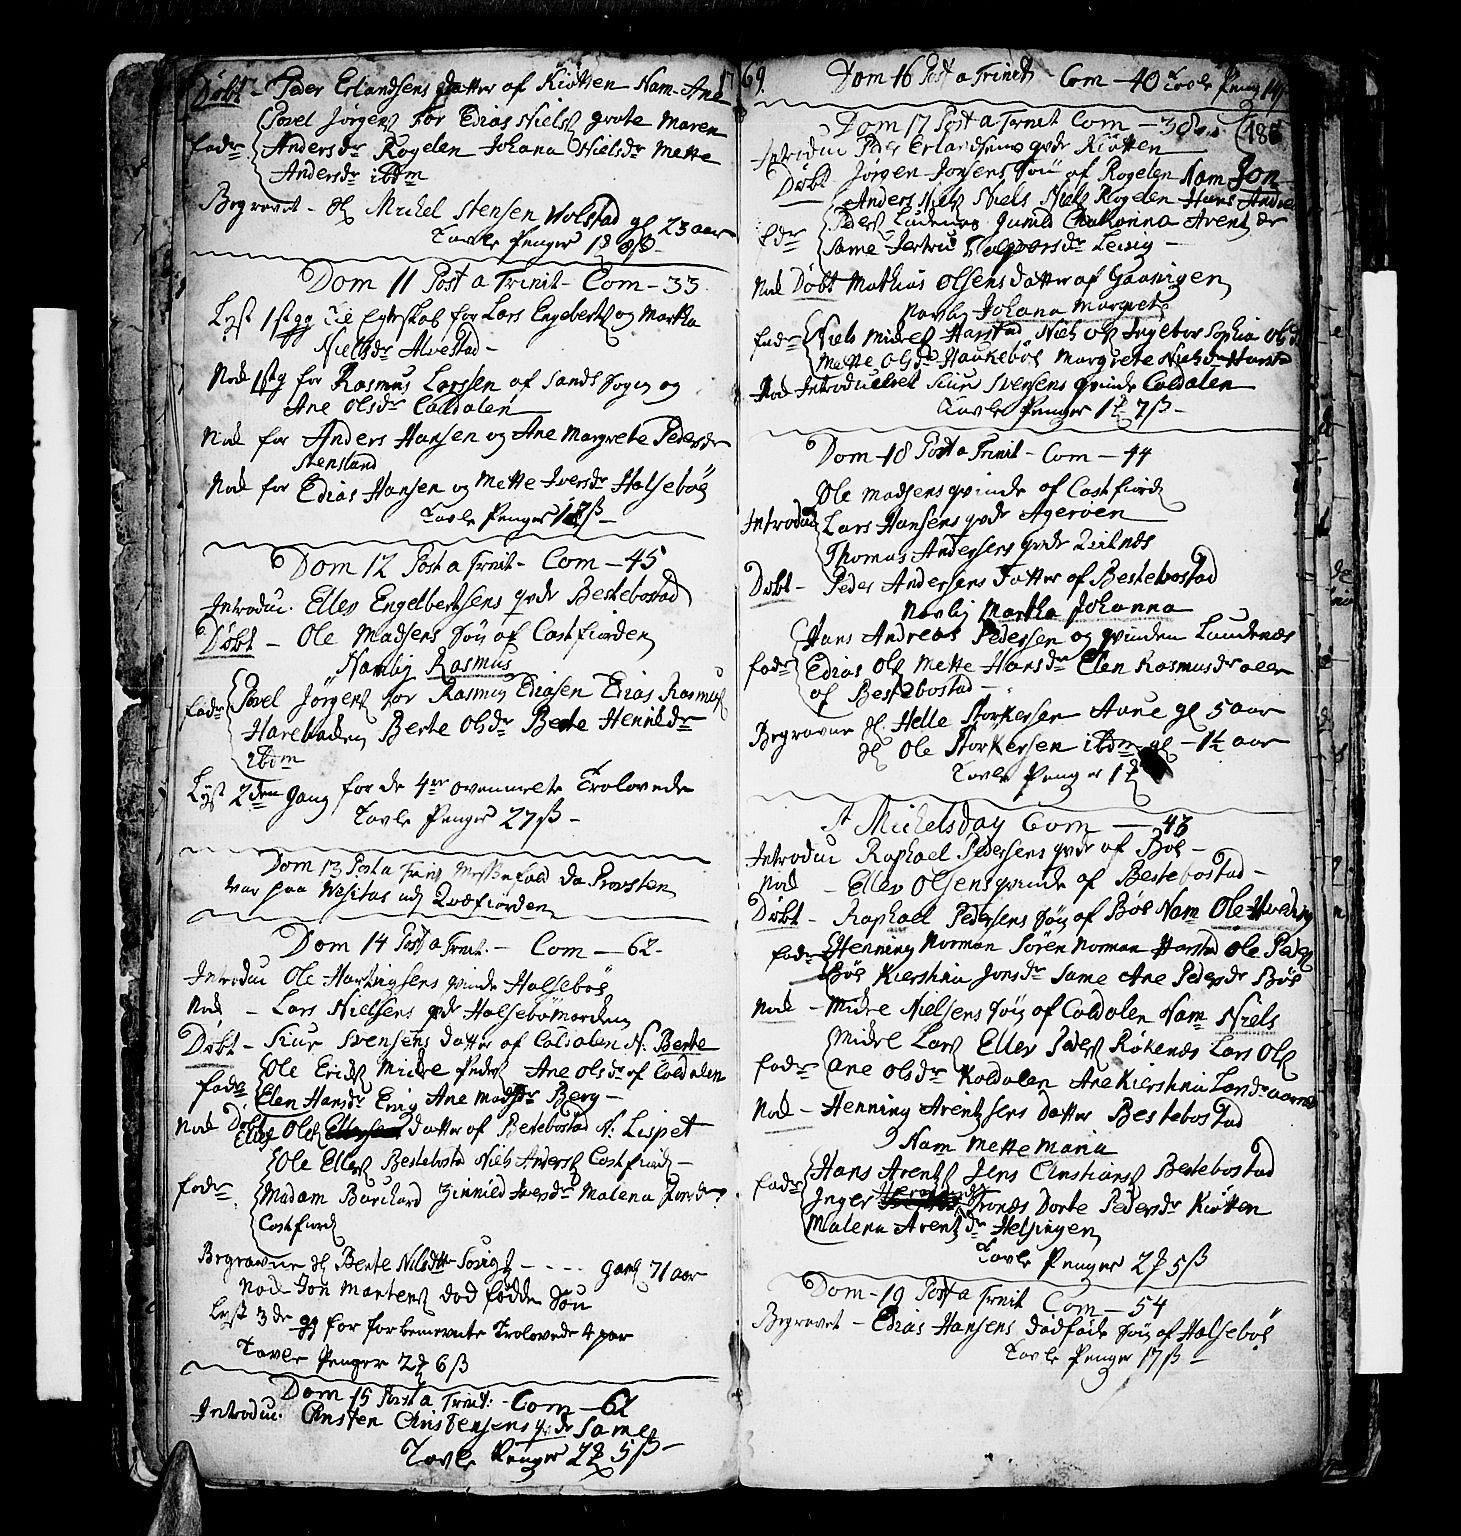 Døbt - Peder Erlandsens datter af Kiøtten Nam - Ane
Povel Jørgens for Edias Niels grote Maren
fadre Andersdr Rogelen Johana Nielsdr Mette
Andersdr ibdm
Begravet - Michel Stensen Wolstad gl 23 aar
Tavle Penger
Dom 11 Post a Trinit - Com - 33
Lyst 1st gg til Egteskab for Lars Engebertz og Martha
Nielsdr Alvestad -
Nok 1st g for Rasmus Larssen af Sands Sogn og
Ane Olsdr Caldalen
Nok for Anders Hansen og Ane Margrete Pedersdr
Stensland
Nok for Edias Hansen og Mette Iversdr Halsebøe
Tavle Penger
Dom 12 Post a Trnit - Com - 45
Introdu. Ellev Engelbertsens qvde Bestebostad
Døbt - Ole Madsens Søn af Castfiorden
Namlig Rasmus
Povel Jørgens for Rasmus Ediasen Edias Rasmus
fadr Berte Olsdr Berte Henrikdr
ibdm
Lyst 2den gang for de 4re ovenmelte Trolovede
Tavle Penger 27 ß -
Dom 13 Post a Trinit Messefald da Provsten
var paa Visitas udj Qvæfiorden
Dom 14 Post a Trnit. - Com - 62 -
Introdu Ole Hartvigsens qvinde Halsebøe
Nok - Lars Nielsens qvde Halsebømarken
Døbt - Siur Svensens datter af Caldalen N. Berte
Ole Erichs Midre Peders Ane Olsdr af Coldalen
fadre Elen Hansdr Ervig Ane Madsdr Berg -
Nok Døbt Ellev Olss datter af Bestebostad N. Lispet
Ole Ellevs Bestebostad Niels Anders Castfiord -
fadr. Madam Burchard Zinnild Iversdr Malena
Castfiord
Begravne Berte Nilsdtter - - - - gaml 71 aar
Nok Jon Mortens død fødde Søn
Lyst 3de gg for forbemeente Trolovede 4 par
Tavle Penger 2 6 ß
Dom 15 Post a Trinit: - Com - 62
Introdu: Christen Christensens qvde Same
Tavle Penger 22 5 ß -
1769.
Dom 16 Post a Trinit - Com - 40 Tavle Peng
Dom 17 Post a Trnit Com - 38
Introdu Peder Erlandsens qvde Kiøtten
Døbt Jørgen Jonsens Søn af Rogelen Nam Jon
Anders Niels Niels Niels Rogelen Hans Andre
fadr Peders Laudenæs Gunild Chatrinna Arentzdr
Same Jertru
Nok Døbt Mathias Olsens datter af Gaanigen
Navlig Johana Margrete
fadr Niels Midres Harstad Niels Ols Ingebor Sophia Olsd
Mette Olsdr Haukebøe Margrete Nielsdr Harsta
Nok Introduceret Siur Svensens qvinde Caldalen
Tavle Penger 1 7 ß -
Dom - 18 Post a Trinit - Com - 44
Ole Madsens qvinde af Castfiord
Introdu Lars Hansens qvde Agerøen
Thomas Andersens qvde
Døbt - Peder Andersens datter af Bestebostad
Navlig Martha Johanna
Hans Andreas Pedersen og qvinden Laudenæs
fadr Edias Ols Mette Hansdr Elen Rasmusdr alle
af Bestebostad -
Begravne Helle Storkersen Aune gl 5 aar
Ole Storkersen ibdm gl - 1½ aar
Tavle Penger 1
St Michelsday Com - 43
Introdu Raphael Pedersens qvde af Bøe -
Nok - Ellev Olsens qvinde af Bestebostad -
Døbt - Raphael Pedersens Søn af Bøe Nam Ole
fadr Henning Norman Søren Norman Harstad Ole Peders
Bøe Kierstina Jonsdr Same Ane Pedersdr Bøe
Nok - Midre Nielsens Søn af Coldalen Nam Niels
Midre Lars Ellev Peders Røkenæs Lars Ols
fadr Ane Olsdr Koldalen Ane Kierstina
Nok - Henning Arentzsens datter Bestebostad
Nam Mette Maria
Hans Arentz Jens Christians Bestebostad
fadr Inger Tronds Dorte Pedersdr Kiøtten
Malena Arentzdr Helsingen
Tavle Penger 2 5 ß
Dom - 19 Post a Trnit Com - 54
Begravet - Edias Hansens dødfødte Søn af Halsebøe
Tavle Penger 17 ß -